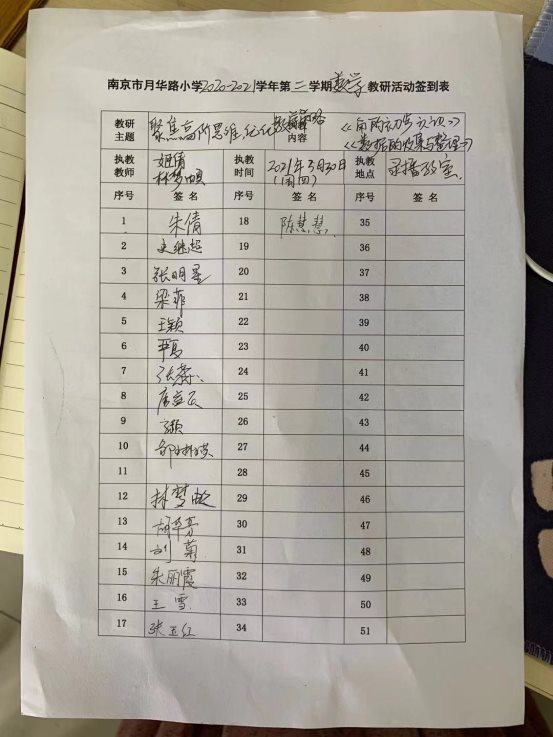 南京市月华路小学2020-2021学年第二学期数学教研活动签到表
教研主题 聚焦高阶思维,优化 教学策略 执教内容 《角的初步认识》
《数据的收集与整理》
执教教师 林梦 执教时间 2021年3月30日 执教地点 录播教室
(周四)
序号 签 名 序号 签 名 序号 签 名
1 朱倩 18 陈慧慧 35
2 史继超 19 36
3 张明星 20 37
4 梁菲 21 38
5 王颖 22 39
6 23 40
7 张蕊 24 41
8 25 42
9 26 43
10 27 44
11 28 45
12 林梦 29 46
13 胡华芳 30 47
14 刘菊 31 48
15 朱丽霞 32 49
16 王雪 33 50
17 张玉红 34 51